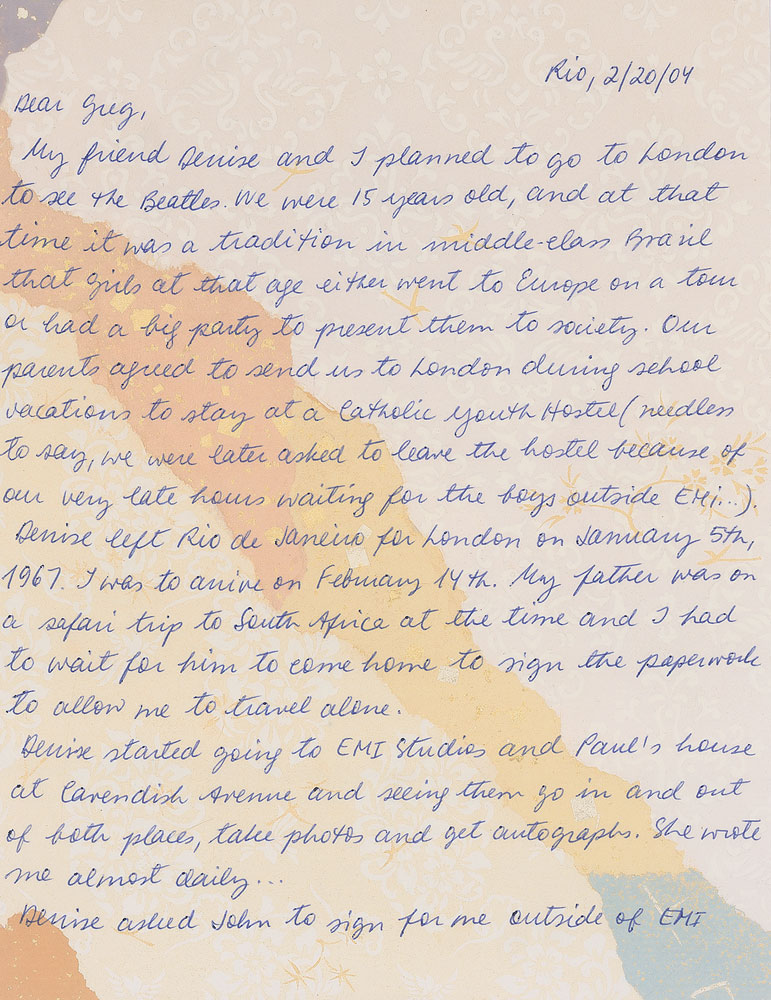 Rio, 2/20/04
Dear Greg,
My friend Denise and I planned to go to London
to see the Beatles. We were 15 years old, and at that
time it was a tradition in middle-class Brazil
that girls at that age either went to Europe on a tour
or had a big party to present them to society. Our
parents agreed to send us to London during school
vacations to stay at a Catholic Youth Hostel (needless
to say, we were later asked to leave the hostel because of
our very late hours waiting for the boys outside EMI...).
Denise left Rio de Janeiro for London on January 5th,
1967. I was to arrive on February 14th. My father was on
a safari trip to South Africa at the time and I had
to wait for him to come home to sign the paperwork
to allow me to travel alone.
Denise started going to EMI Studios and Paul's house
at Cavendish Avenue and seeing them go in and out
of both places, take photos and get autographs. She wrote
me almost daily...
Denise asked John to sign for me outside of EMI